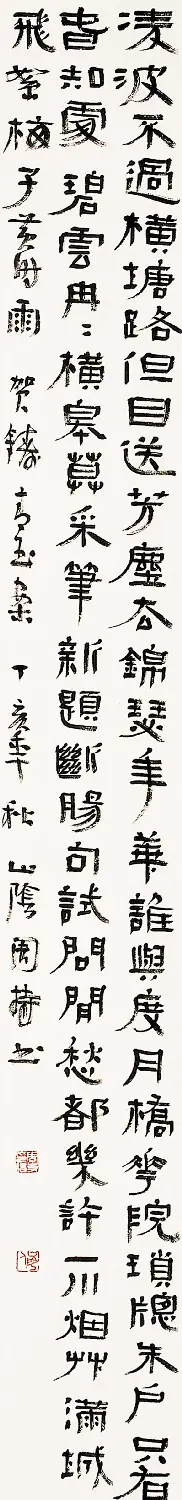 凌波不過橫塘路但目送芳塵去錦瑟年華誰與度月橋花院瑣牕朱戶只有
春知處碧雲冉〻橫皋莫采筆新題斷腸句試問閒愁都幾許一川烟艸滿城
飛絮梅子黃時雨 贺鑄青玉案 丁亥年秋山陰周書